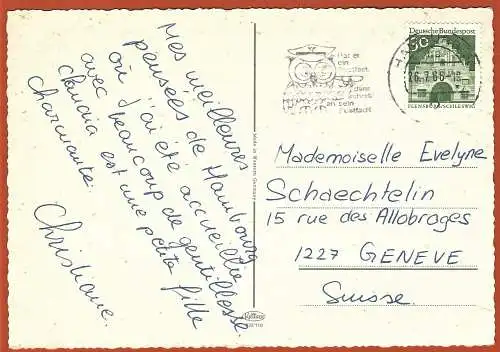 Mes meilleures
pensées de Hambourg
où j'ai été accueillie
avec beaucoup de gentillesse.
Claudia est une petite fille
charmante.
Christiane.
Made in Western Germany
Deutsche Bundespost
30
FLENSBURG/SCHLESWIG
26.7.66-18
Hat er
ein
Postfach,
dann
schreib
an sein
Postfach!
Mademoiselle Evelyne
Schaechtelin
15 rue des Allobroges
1227 GENEVE
Suisse.